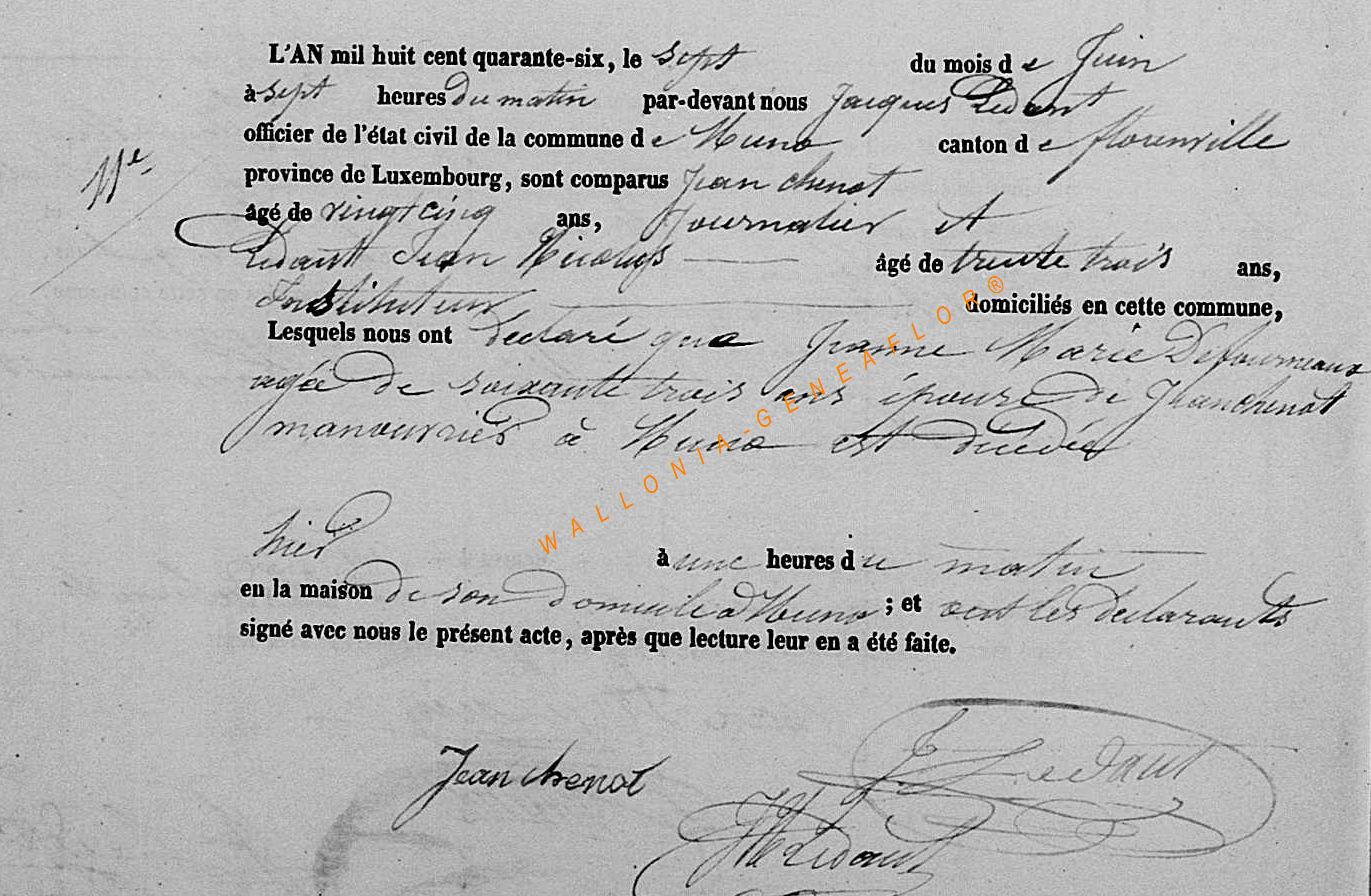 L'AN mil huit cent quarante-six, le sept du mois de Juin
à sept heures du matin par-devant nous Jacques Ledant
officier de l'état civil de la commune de Muno canton de florenville
11e.
province de Luxembourg, sont comparus Jean chenot
âgé de vingt cinq ans, Journalier et
Ledant Jean Nicolas âgé de trente trois ans,
Instituteur domiciliés en cette commune,
Lesquels nous ont déclaré que Jeanne Marie Defourneaux
agée de soixante trois ans épouse de Jean chenot
manouvrier à Muno est décédée
hier à une heures du matin
en la maison de son domicile à Muno ; et ont les déclarants
signé avec nous le présent acte, après que lecture leur en a été faite.
WALLONIA-GENEAFLOR®
Jean chenot J Ledant
JN Ledant